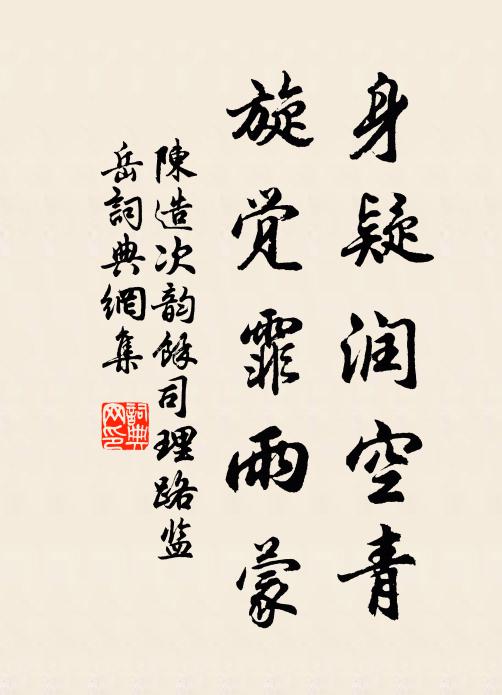 身疑润空青
旋觉霏雨蒙
陳造次韵馀司理路监
岳詞典網集
詞典网印